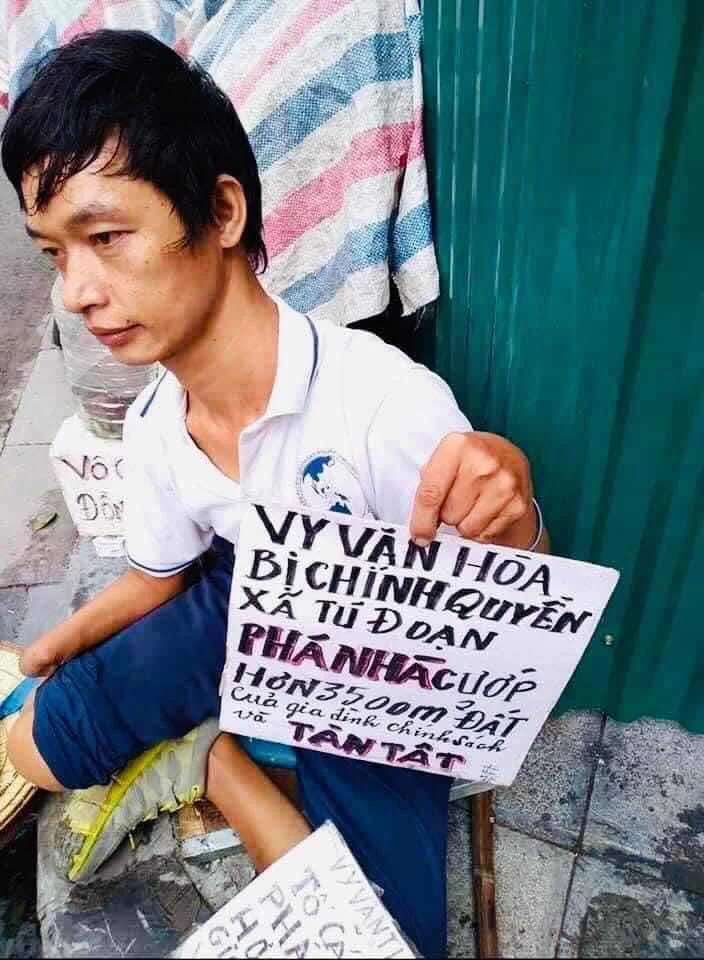 VY VĂN HÒA
BỊ CHÍNH QUYỀN
XÃ TÚ ĐOẠN
PHÁ NHÀ CƯỚP
HƠN 3500m² ĐẤT
Của gia đình chính sách
và TÀN TẬT
VÔ
VY VĂN
TỐ CÁ
PHÁ